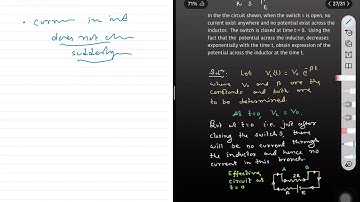 • current in ind
does not chan
suddenly
71%
27/31
R S E
In the the circuit shown, when the switch s is open, no
current exist anywhere and no potential exist across the
inductor. The switch is closed at time t = 0. Using the
fact that the potential across the inductor, decreases
exponentially with the time t, obtain expression of the
potential across the inductor at the time t.
Sol<sup>n</sup>: Let V_L(t) = V_0 e^{-βt}
where V_0 and β are the
constants and both are
to be determined.
At t=0, V_L = V_0.
But at t=0 i.e. just after
closing the switch S, there
will be no current through
the inductor and hence no
current in this branch.
Effective
circuit at
t=0
A B
2R
R E